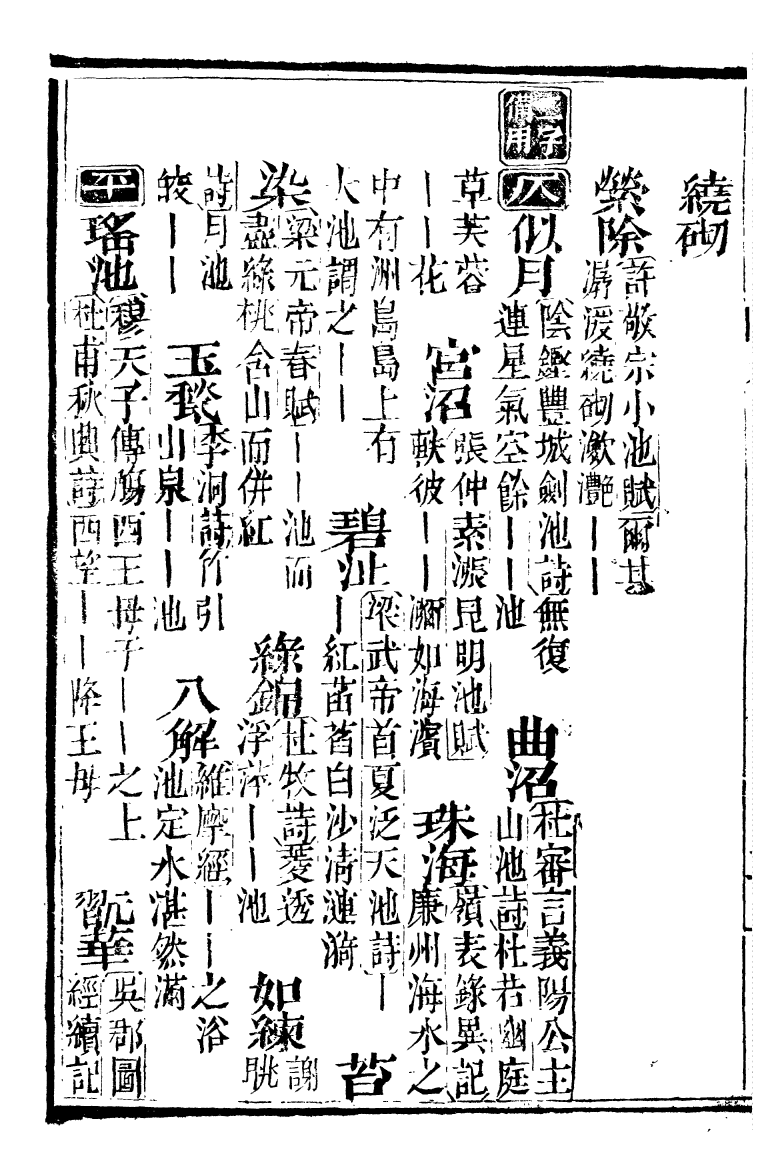 繞砌
縈除許敬宗小池賦爾其
潺湲繞砌瀲灧——
二字備用
仄似月陰鏗豐城劍池詩無復
連星氣空餘——池
曲沼杜審言義陽公主
山池詩杜若幽庭
草芙蓉
——花
宮沼張仲素漲昆明池賦
軼彼——瀰如海濱
珠海嶺表錄異記
廉州海水之
中有洲島島上有
大池謂之——
碧沚梁武帝首夏泛天池詩—
—紅菡萏白沙清漣漪
苔
染梁元帝春賦——池而
盡綠桃含山而併紅
綠錦杜牧詩菱透
浮萍——池
如練謝
朓
詩月池
皎——
玉甃李洞詩竹引
山泉——池
八解維摩經——之浴
池定水湛然滿
平瑤池穆天子傳觴西王母子——之上
杜甫秋興詩西望——降王母
翫華吳郡圖
經續記